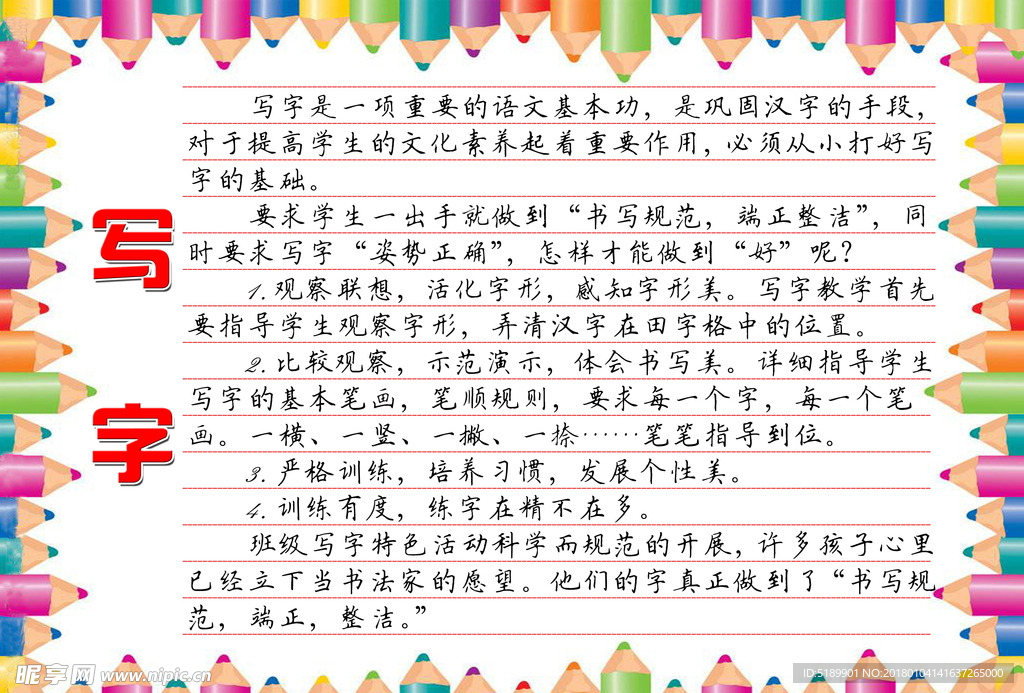 写字
写字是一项重要的语文基本功，是巩固汉字的手段，
对于提高学生的文化素养起着重要作用，必须从小打好写
字的基础。
要求学生一出手就做到“书写规范，端正整洁”，同
时要求写字“姿势正确”，怎样才能做到“好”呢？
1.观察联想，活化字形，感知字形美。写字教学首先
要指导学生观察字形，弄清汉字在田字格中的位置。
2.比较观察，示范演示，体会书写美。详细指导学生
写字的基本笔画，笔顺规则，要求每一个字，每一个笔
画。一横、一竖、一撇、一捺……笔笔指导到位。
3.严格训练，培养习惯，发展个性美。
4.训练有度，练字在精不在多。
班级写字特色活动科学而规范的开展，许多孩子心里
已经立下当书法家的愿望。他们的字真正做到了“书写规
范，端正，整洁。”
昵享网 www.nipic.cn
ID:5189901 NO:20180104141637265000